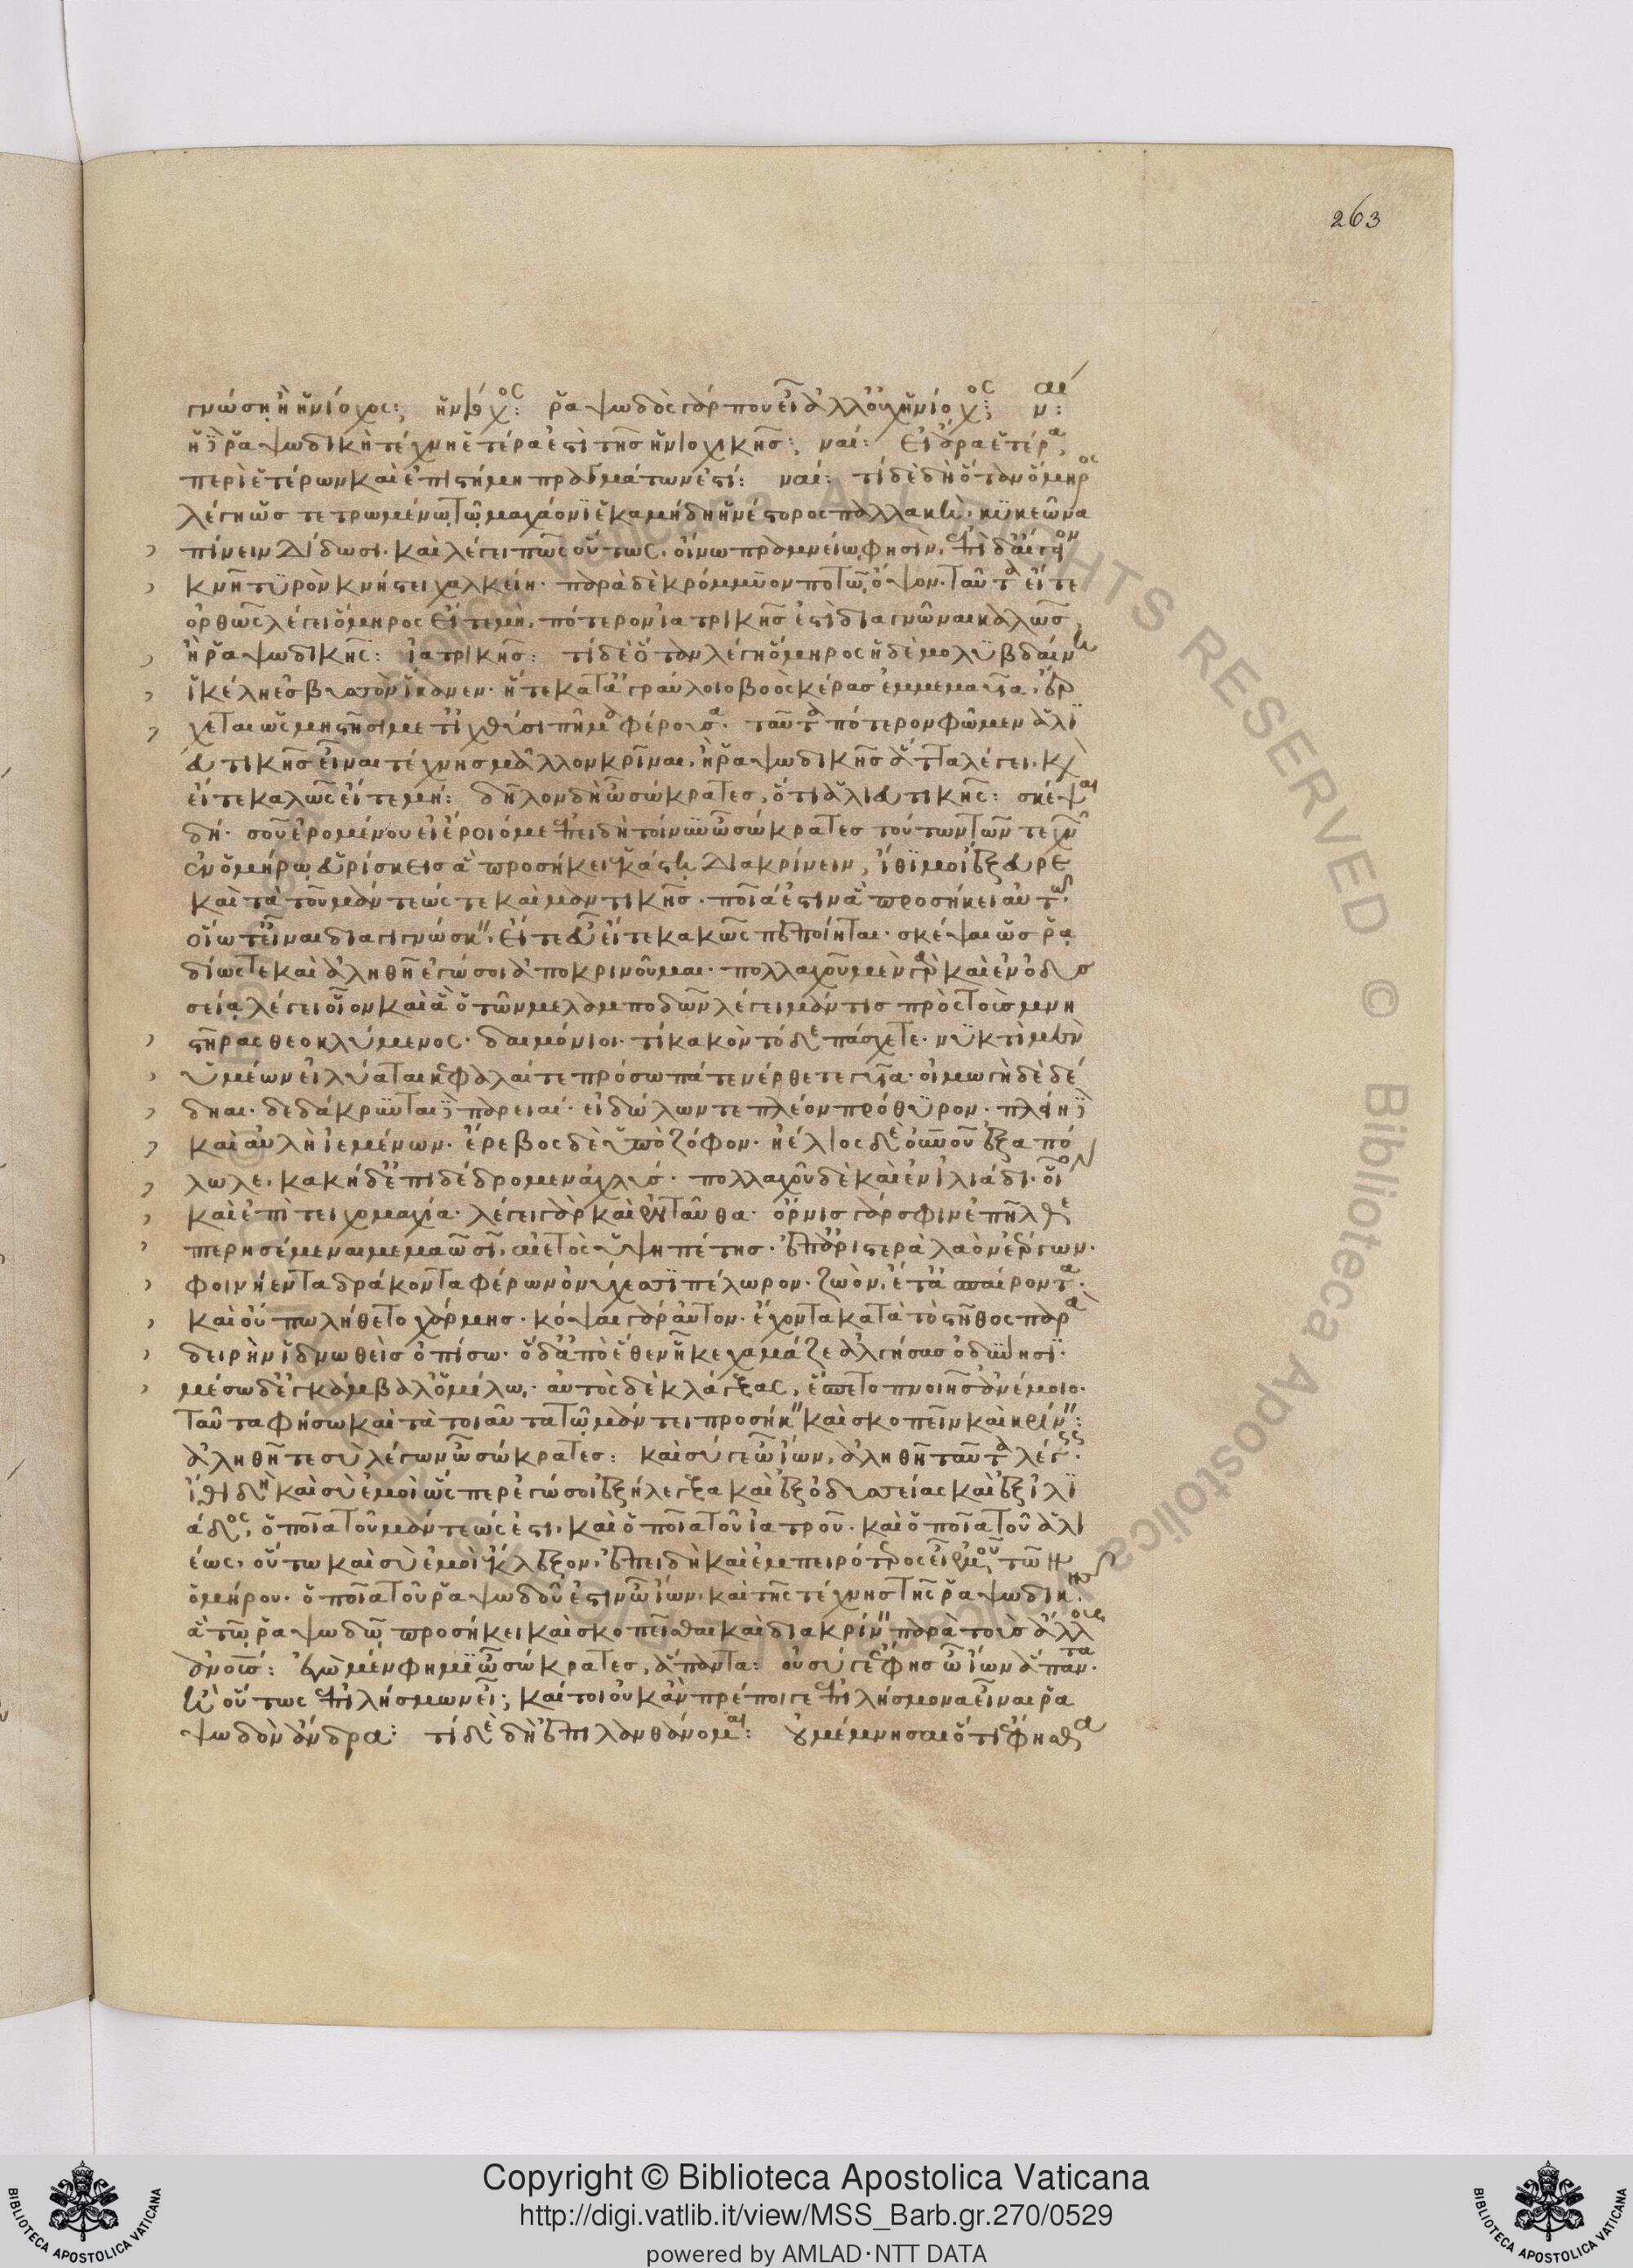 263
γνώση ἢ ἡνίοχος; ἡνίοχος: ῥαψωδὸς γάρ που εἶ ἀλλ' οὐχ ἡνίοχος; ναί:
ἡ ῥαψωδικὴ τέχνη ἑτέρα ἐστὶ τῆς ἡνιοχικῆς; ναί: εἰ ἄρα ἑτέρα,
περὶ ἑτέρων καὶ ἐπιστήμη πραγμάτων ἐστί: ναί: τί δὲ δὴ ὅταν ὅμηρος
λέγη ὡς τετρωμένω τῶ μαχάονι ἑκαμήδη ἡ νέστορος παλλακὴ, κυκεῶνα
πίνειν δίδωσι. καὶ λέγει πως οὕτως. οἴνω πραμνείω φησὶν, ἐπὶ δ' αἴγιον
κνῆ τυρὸν κνήστει χαλκείη. παρὰ δὲ κρόμμυον ποτῶ ὄψον. ταῦτα εἴτε
ὀρθῶς λέγει ὅμηρος εἴτε μὴ, πότερον ἰατρικῆς ἐστὶ διαγνῶναι καλῶς
ἢ ῥαψωδικῆς: ἰατρικῆς: τί δὲ ὅταν λέγη ὅμηρος ἡ δὲ μολυβδαίνη
ἰκέλη ἐς βυσσὸν ἵκανεν. ἥ τε κατ' ἀγραύλοιο βοὸς κέρας ἐμμεμαυῖα, ἔρ
χεται ὠμηστῆσι μετ' ἰχθύσι πῆμα φέρουσα. ταῦτα πότερον φῶμεν ἁλι
ευτικῆς εἶναι τέχνης μᾶλλον κρῖναι, ἢ ῥαψωδικῆς ἅττα λέγει. καὶ
εἴτε καλῶς εἴτε μή: δῆλον δὴ ὦ σώκρατες, ὅτι ἁλιευτικῆς: σκέψαι
δή. σοῦ ἐρομένου εἰ ἔροιό με ἐπειδὴ τοίνυν ὦ σώκρατες τούτων τῶν τεχνῶν
ἐν ὁμήρω εὑρίσκεις ἃ προσήκει ἑκάστη διακρίνειν, ἴθι μοι ἔξευρε
καὶ τὰ τοῦ μάντεώς τε καὶ μαντικῆς. ποῖά ἐστιν ἃ προσήκει αὐτῶ
οἵω τ' εἶναι διαγιγνώσκειν, εἴτε εὖ εἴτε κακῶς πεποίηται. σκέψαι ὡς ῥα
δίως τε καὶ ἀληθῆ ἐγώ σοι ἀποκρινοῦμαι. πολλαχοῦ μὲν γὰρ καὶ ἐν ὀδυσ
σεία λέγει οἷον καὶ ἃ ὁ τῶν μελαμποδῶν λέγει μάντις πρὸς τοὺς μνη
στῆρας θεοκλύμενος. δαιμόνιοι. τί κακὸν τόδε πάσχετε. νυκτὶ μὲν
ὑμέων εἰλύαται κεφαλαί τε πρόσωπά τε νέρθε τε γυῖα. οἰμωγὴ δὲ δέ
δηαι. δεδάκρυνται παρειαί. εἰδώλων τε πλέον πρόθυρον. πλείη
καὶ αὐλὴ ἱεμένων. ἔρεβος δὲ ὑπὸ ζόφον. ἠέλιος δὲ οὐρανοῦ ἐξαπό
λωλε, κακὴ δ' ἐπιδέδρομεν ἀχλύς. πολλαχοῦ δὲ καὶ ἐν ἰλιάδι. οἷον
καὶ ἐπὶ τειχομαχία. λέγει γὰρ καὶ ἐνταῦθα. ὄρνις γάρ σφιν ἐπῆλθε
περησέμεναι μεμαῶσιν, αἰετὸς ὑψηπέτης. ἐπ' ἀριστερὰ λαὸν ἐέργων.
φοινήεντα δράκοντα φέρων ὀνύχεσσι πέλωρον. ζωὸν, ἔτ' ἀσπαίροντα.
καὶ οὔπω λήθετο χάρμης. κόψε γὰρ αὐτὸν. ἔχοντα κατὰ τὸ στῆθος παρὰ
δειρὴν ἰδνωθεὶς ὀπίσω. ὁ δ' ἀπὸ ἕθεν ἧκε χαμάζε ἀλγήσας ὀδύνησι.
μέσω δ' ἐγκάμβαλ' ὁμίλω. αὐτὸς δὲ κλάγξας, ἕπετο πνοιῆς ἀνέμοιο.
ταῦτα φήσω καὶ τὰ τοιαῦτα τῶ μάντει προσήκειν καὶ σκοπεῖν καὶ κρίνειν:
ἀληθῆ γε σὺ λέγων ὦ σώκρατες: καὶ σύ γε ὦ ἴων, ἀληθῆ ταῦτα λέγεις.
ἴθι δὴ καὶ σὺ ἐμοὶ ὥσπερ ἐγώ σοι ἐξήλεγξα καὶ ἐξ ὀδυσσείας καὶ ἐξ ἰλι
άδος, ὁποῖα τοῦ μάντεώς ἐστι, καὶ ὁποῖα τοῦ ἰατροῦ. καὶ ὁποῖα τοῦ ἁλι
έως, οὕτω καὶ σὺ ἐμοὶ ἔκλεξον, ἐπειδὴ καὶ ἐμπειρότερος εἶ ἐμοῦ τῶν
ὁμήρου. ὁποῖα τοῦ ῥαψωδοῦ ἐστιν ὦ ἴων, καὶ τῆς τέχνης τῆς ῥαψωδικῆς.
ἃ τῶ ῥαψωδῶ προσήκει καὶ σκοπεῖσθαι καὶ διακρίνειν παρὰ τοὺς ἄλλους
ἀνους: ἐγὼ μέν φημι ὦ σώκρατες, ἅπαντα: οὐ σύ γε ἔφης ὦ ἴων ἅπαντα.
ἢ οὕτως ἐπιλήσμων εἶ; καίτοι οὐκ ἂν πρέποι γε ἐπιλήσμονα εἶναι ῥα
ψωδὸν ἄνδρα: τί δὲ δὴ ἐπιλανθάνομαι: οὐ μέμνησαι ὅτι ἔφησθα
Copyright © Biblioteca Apostolica Vaticana
http://digi.vatlib.it/view/MSS_Barb.gr.270/0529
powered by AMLAD·NTT DATA